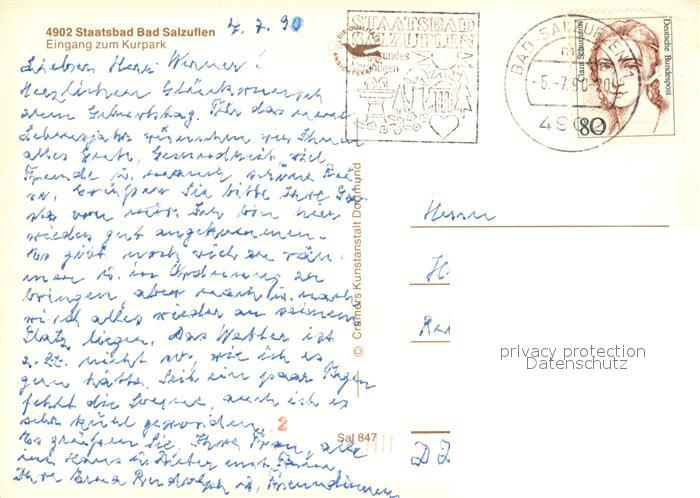 4. 7. 90
4902 Staatsbad Bad Salzuflen
Eingang zum Kurpark
Lieber Herr Werner!
Herzlichen Glückwunsch
zum Geburtstag. Für das neue
Lebensjahr wünschen wir Ihnen
alles Gute, Gesundheit, viel
Freude u. manch schöne
Grüßen Sie bitte Ihre
von mir. Ich bin hier
wieder gut angekommen.
Es gibt noch viel zu räu-
men u. in Ordnung zu
bringen, aber nach u. nach
wird alles wieder an seinem
Platz liegen. Das Wetter ist
z. Zt. nicht so, wie ich es
gern hätte. Seit ein paar Tagen
fehlt die Sonne, auch ist es
sehr kühl geworden.
Es grüßen Sie, Ihre Frau, alle
im Haus u.
Ihre u. Freundinnen
2
STAATSBAD
SALZUFLEN
BAD SALZUFLEN 1
-5.-7.90-20
490
Deutsche Bundespost
80
© Cramers Kunstanstalt Dortmund
Sal 847
Herrn
H
D
privacy protection
Datenschutz